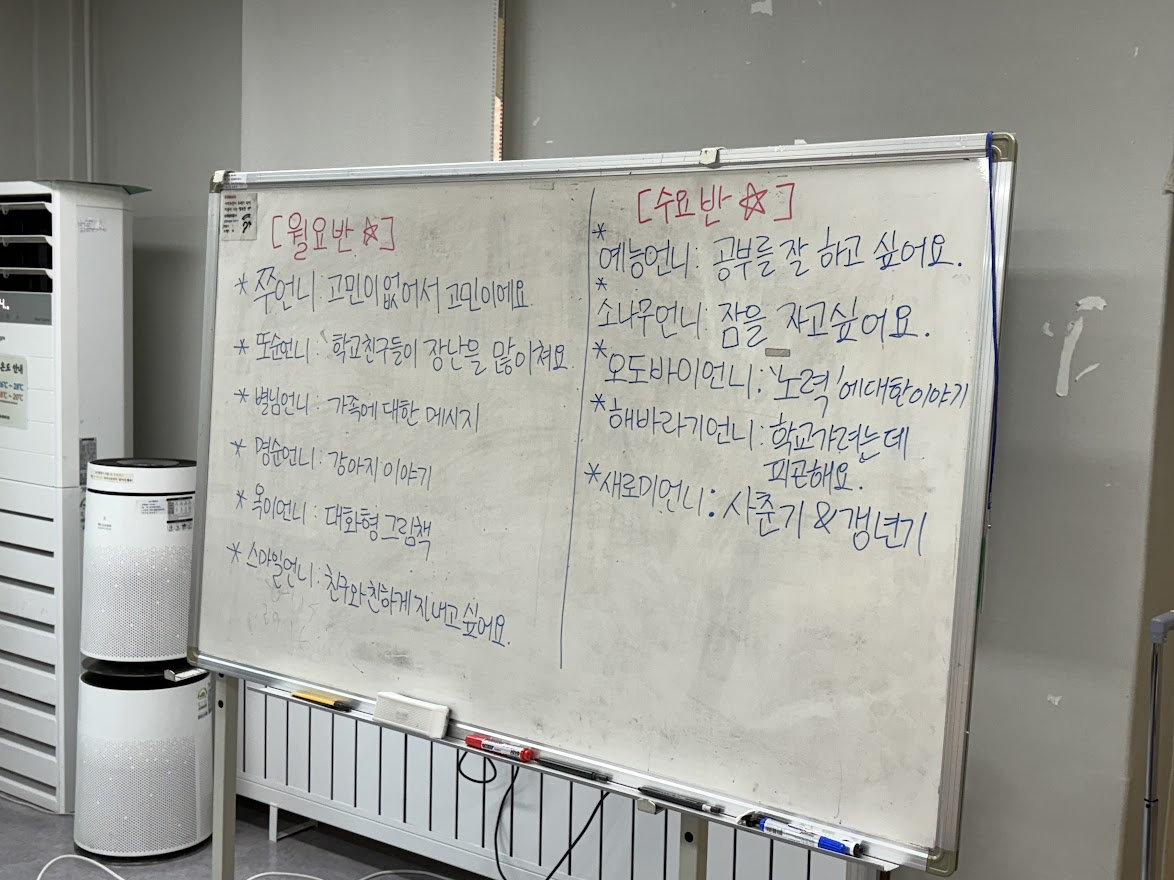 [월요반☆]
* 쭈언니: 고민이 없어서 고민이에요
* 또순언니: 학교친구들이 장난을 많이쳐요
* 별님언니: 가족에 대한 메시지
* 명순언니: 강아지 이야기
* 옥이언니: 대화형 그림책
* 스마일언니: 친구와 친하게 지내고 싶어요.
[수요반☆]
* 예능언니: 공부를 잘 하고 싶어요.
* 소나무언니: 잠을 자고싶어요.
* 오도바이언니: '노력'에대한이야기
* 해바라기언니: 학교가려는데
피곤해요.
* 새로미언니: 사춘기 & 갱년기